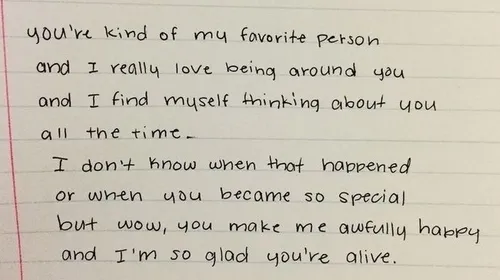 you're kind of my favorite person
and I really love being around you
and I find myself thinking about you
all the time.
I don't know when that happened
or when you became so special
but wow, you make me awfully happy
and I'm so glad you're alive.